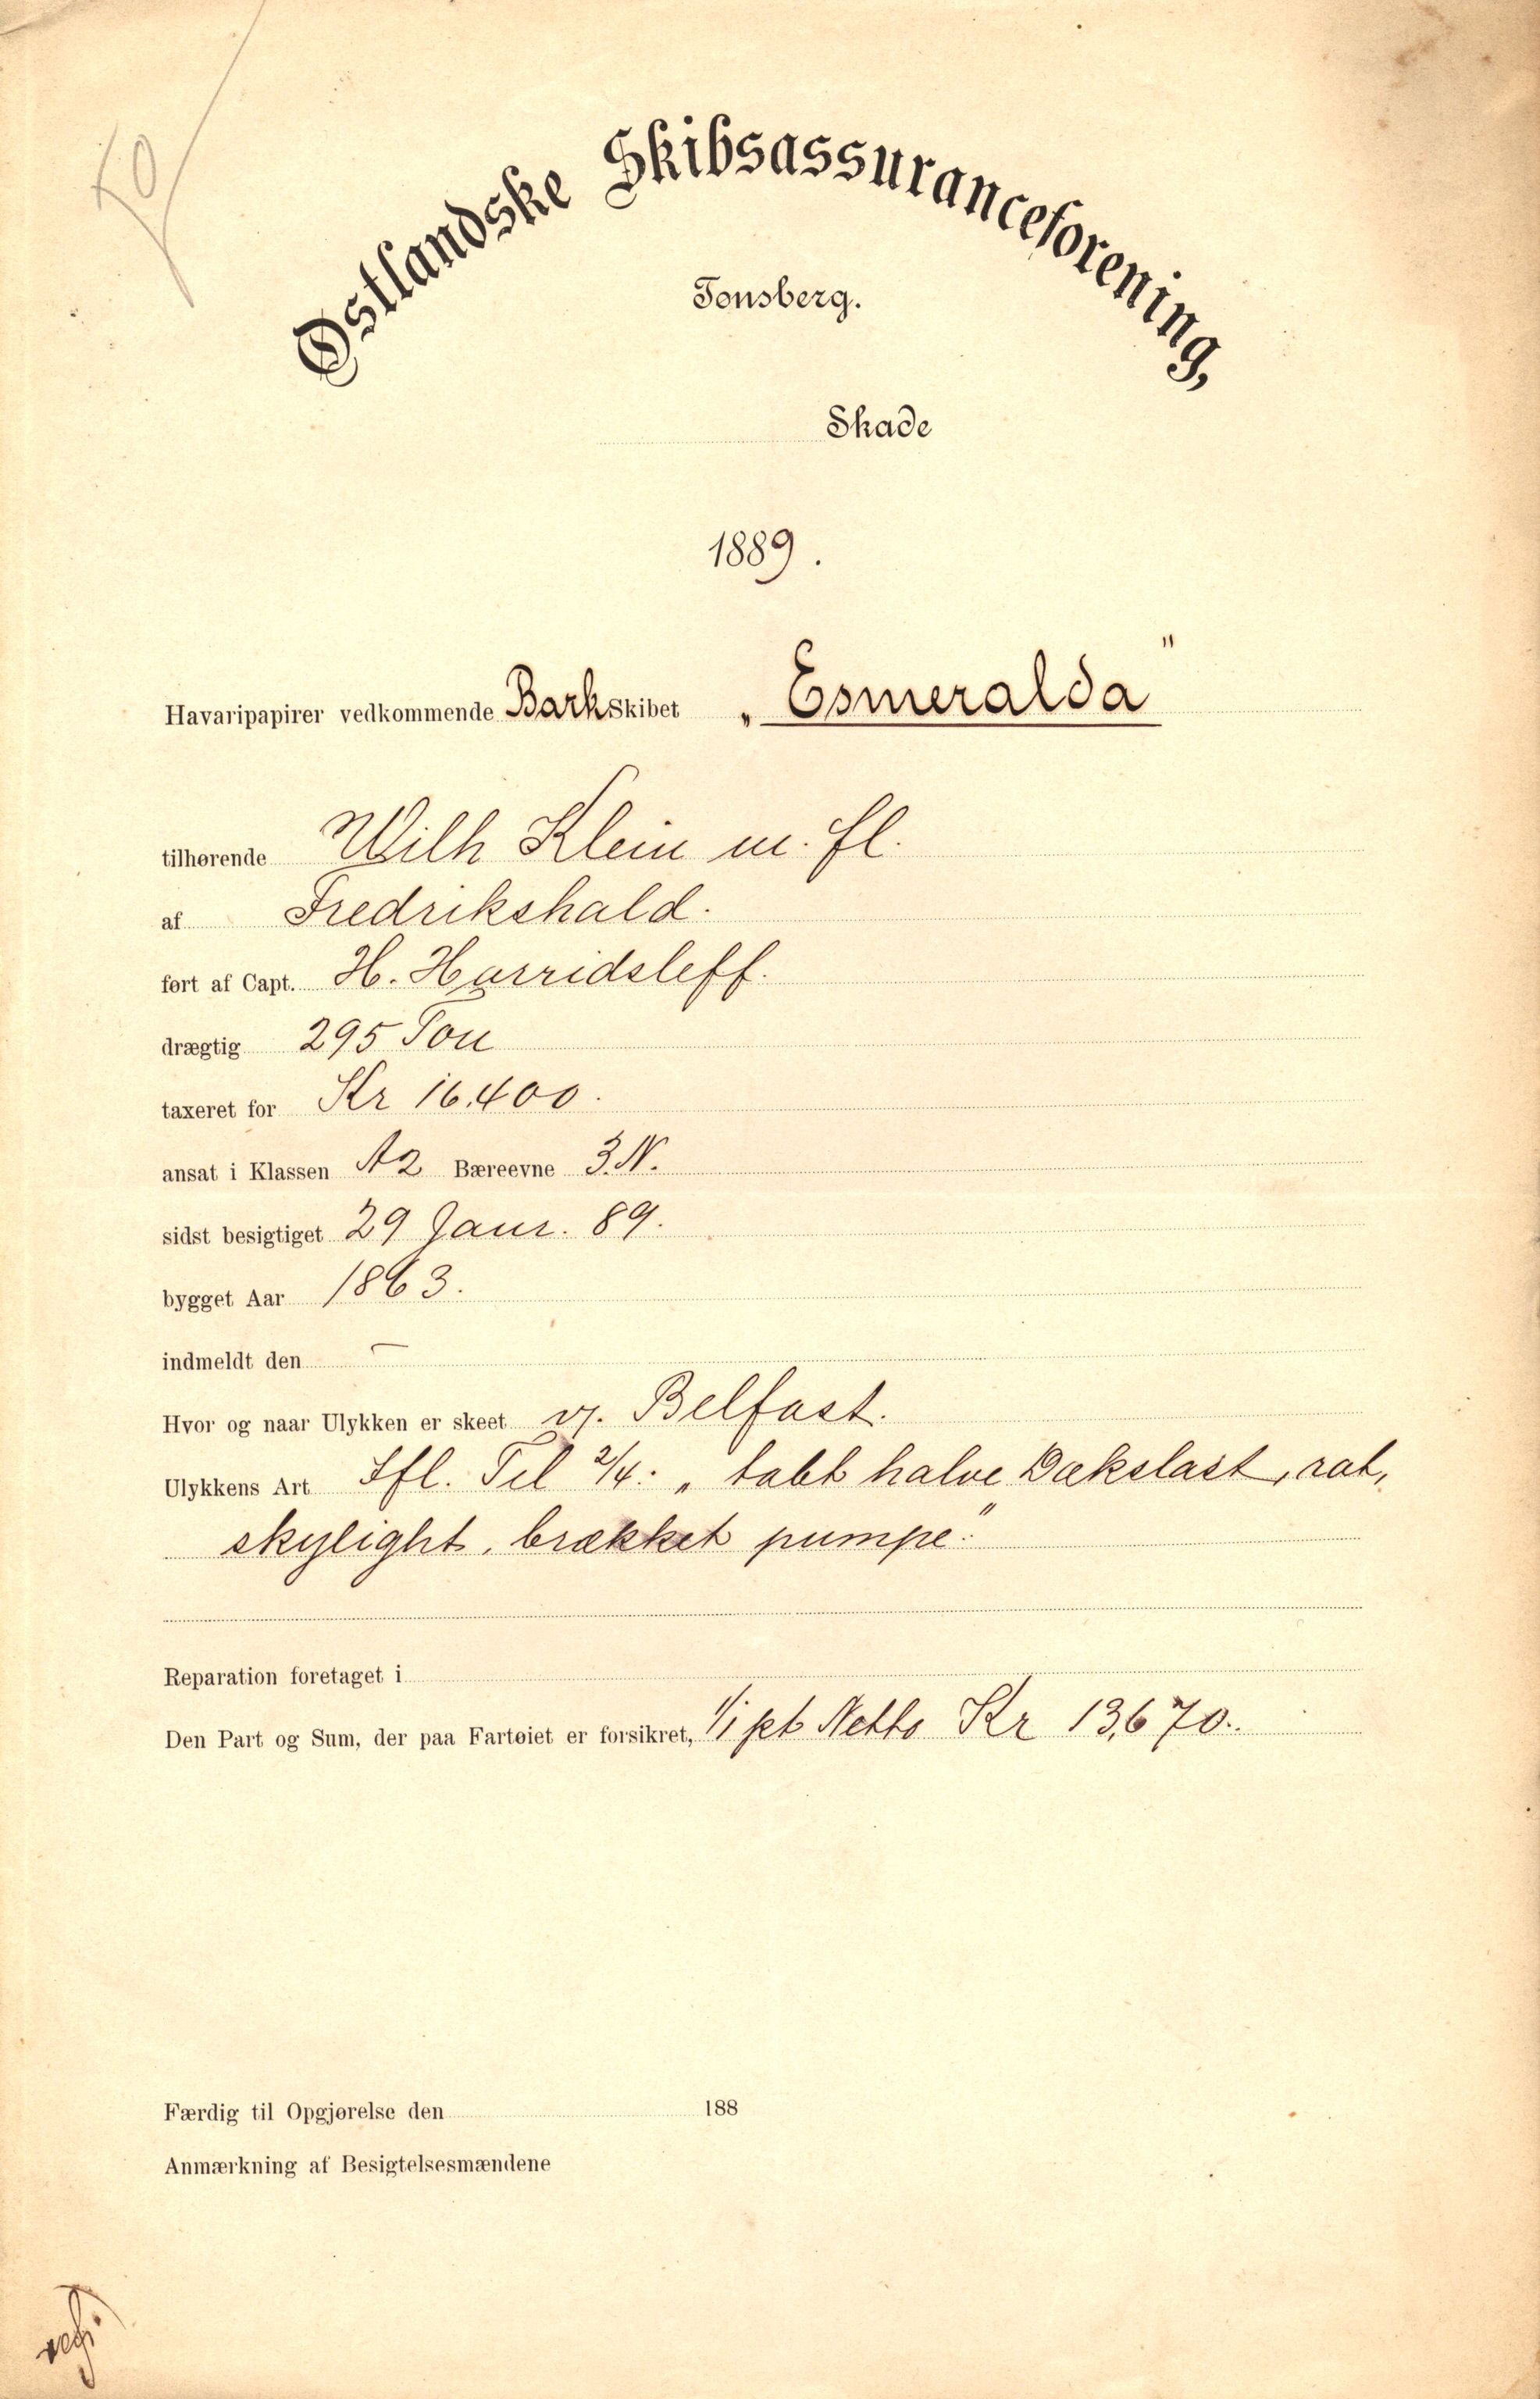 50
Østlandske Skibsassuranceforening,
Tønsberg.
Skade
1889.
Havaripapirer vedkommende Bark Skibet „Esmeralda"
tilhørende Wilh Klein m. fl.
af Fredrikshald.
ført af Capt. H. Harridsleff.
drægtig 295 Ton
taxeret for Kr 16.400.
ansat i Klassen A2 Bæreevne 3.N.
sidst besigtiget 29 Janr. 89.
bygget Aar 1863.
indmeldt den —
Hvor og naar Ulykken er skeet v. Belfast.
Ulykkens Art Ifl. Tel 2/4: „tabt halve Dækslast, rat,
skylight, brækket pumpe."
Reparation foretaget i
Den Part og Sum, der paa Fartøiet er forsikret, 1/1 pt Netto Kr 13,670.
Færdig til Opgjørelse den 188
Anmærkning af Besigtelsesmændene